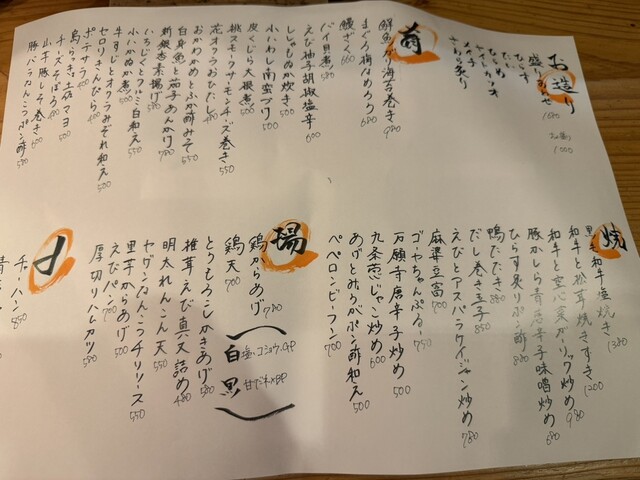 お造り
盛り合せ 1680
ひらす
たい
ひらめ
メイチ
さわら炙り
肴
鮮魚カリカリ海苔巻き 980
まぐろ梅なめろう 680
鰻ざく 660
バイ貝煮 580
えび柚子胡椒塩辛 600
ししゃもぬか炊き 500
小いわし南蛮づけ 500
炭くじら大根煮 500
桃スモークサーモンチーズ巻き 550
花オクラおひたし 480
おかわかめとふか酢みそ 550
白身魚と茄子あんかけ 780
新銀杏素揚げ 580
いちじくとクルミ白和え 550
小いかぬか煮 500
牛すじとオクラみぞれ和え 500
セロリきんぴら 480
ポテサラ 400
鳥らっきょ土佐マヨ 500
チーズそぼろ 400
山芋豚しそ巻き 600
豚バラなんこつポン酢 580
焼
黒毛和牛塩焼き 1380
和牛と松茸焼きすき 1200
和牛と空心菜ガーリック炒め 980
豚かしら青唐辛子味噌炒め 680
ひらす炙りポン酢 880
鴨たたき 880
だし巻き玉子 850
えびとアスパラケイジャン炒め 780
麻婆豆腐 700
ゴーヤちゃんぷるー 750
万願寺唐辛子炒め 500
九条葱じゃこ炒め 600
あげとみょうがポン酢和え 500
ペペロンビーフン 700
揚
鶏からあげ 780
鶏天 700
白 塩コショウ
黒
とうもろこしかきあげ 580
椎茸えび真丈詰め 480
明太れんこん天 550
ヤゲンなんこつチリソース 550
里芋からあげ 500
えびパン 700
厚切りハムカツ 580
〆
チャーハン 850